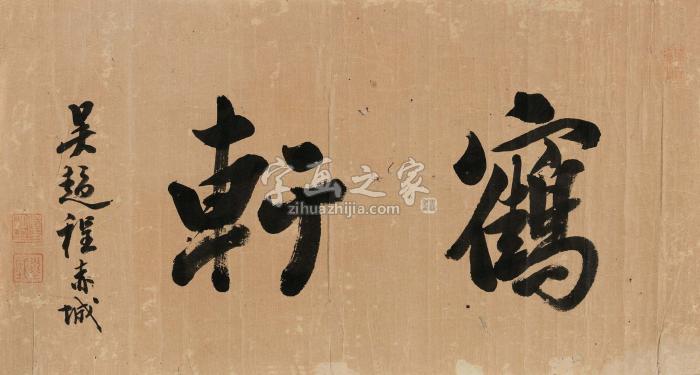 鶴軒
吴趨程赤城
字画之家
zihuazhijia.com